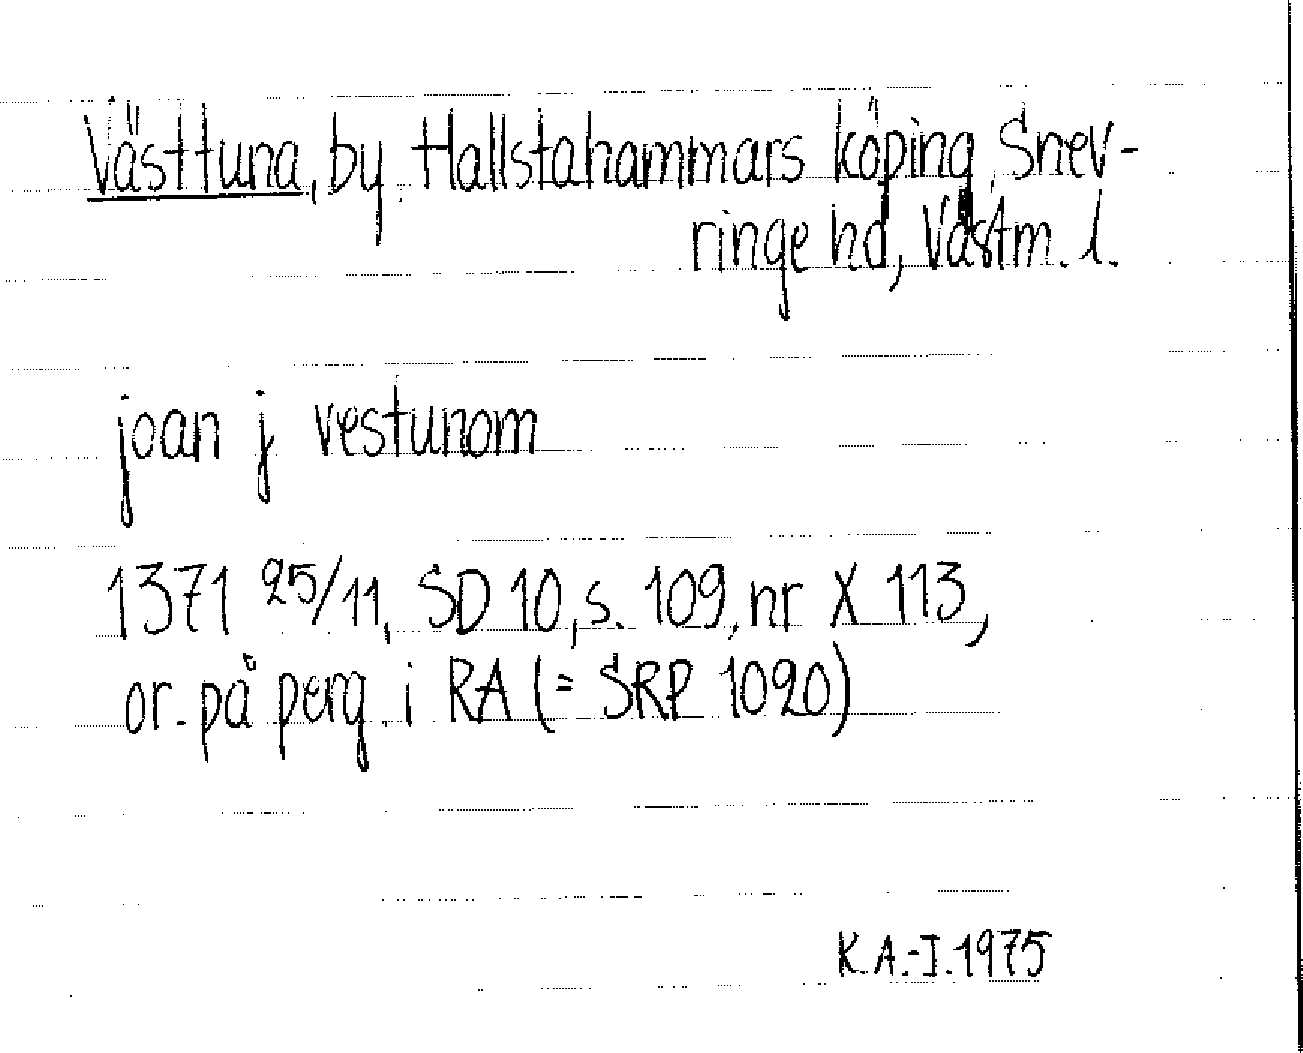 Västtuna, by Hallstahammars köping, Snev-
ringe hd, Västm. l.
joan j vestunom
1371 25/11, SD 10, s. 109, nr X 113,
or. på perg. i RA (= SRP 1020)
K.A.-I. 1975